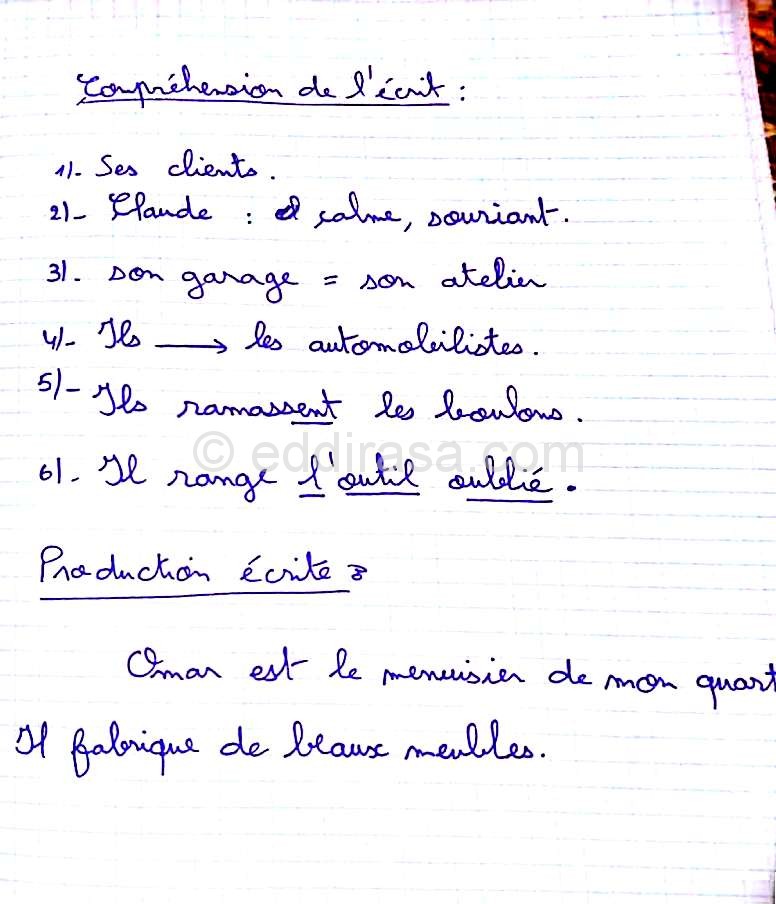 Compréhension de l'écrit :
1)- Ses clients.
2)- Claude : calme, souriant.
3)- son garage = son atelier
4)- Ils → les automobilistes.
5)- Ils ramassent les boulons.
© eddirasa.com
6)- Il range l'outil oublié.
Production écrite :
Omar est le menuisier de mon quart
Il fabrique de beaux meubles.